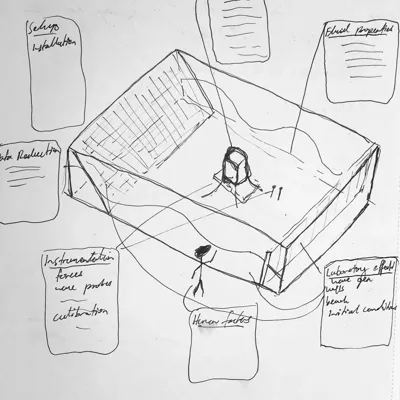 Setup
installation
Fluid properties
Data Reduction
Instrumentation
forces
wave probes
calibration
Human factors
Laboratory effects
wave gen
walls
beach
initial conditions